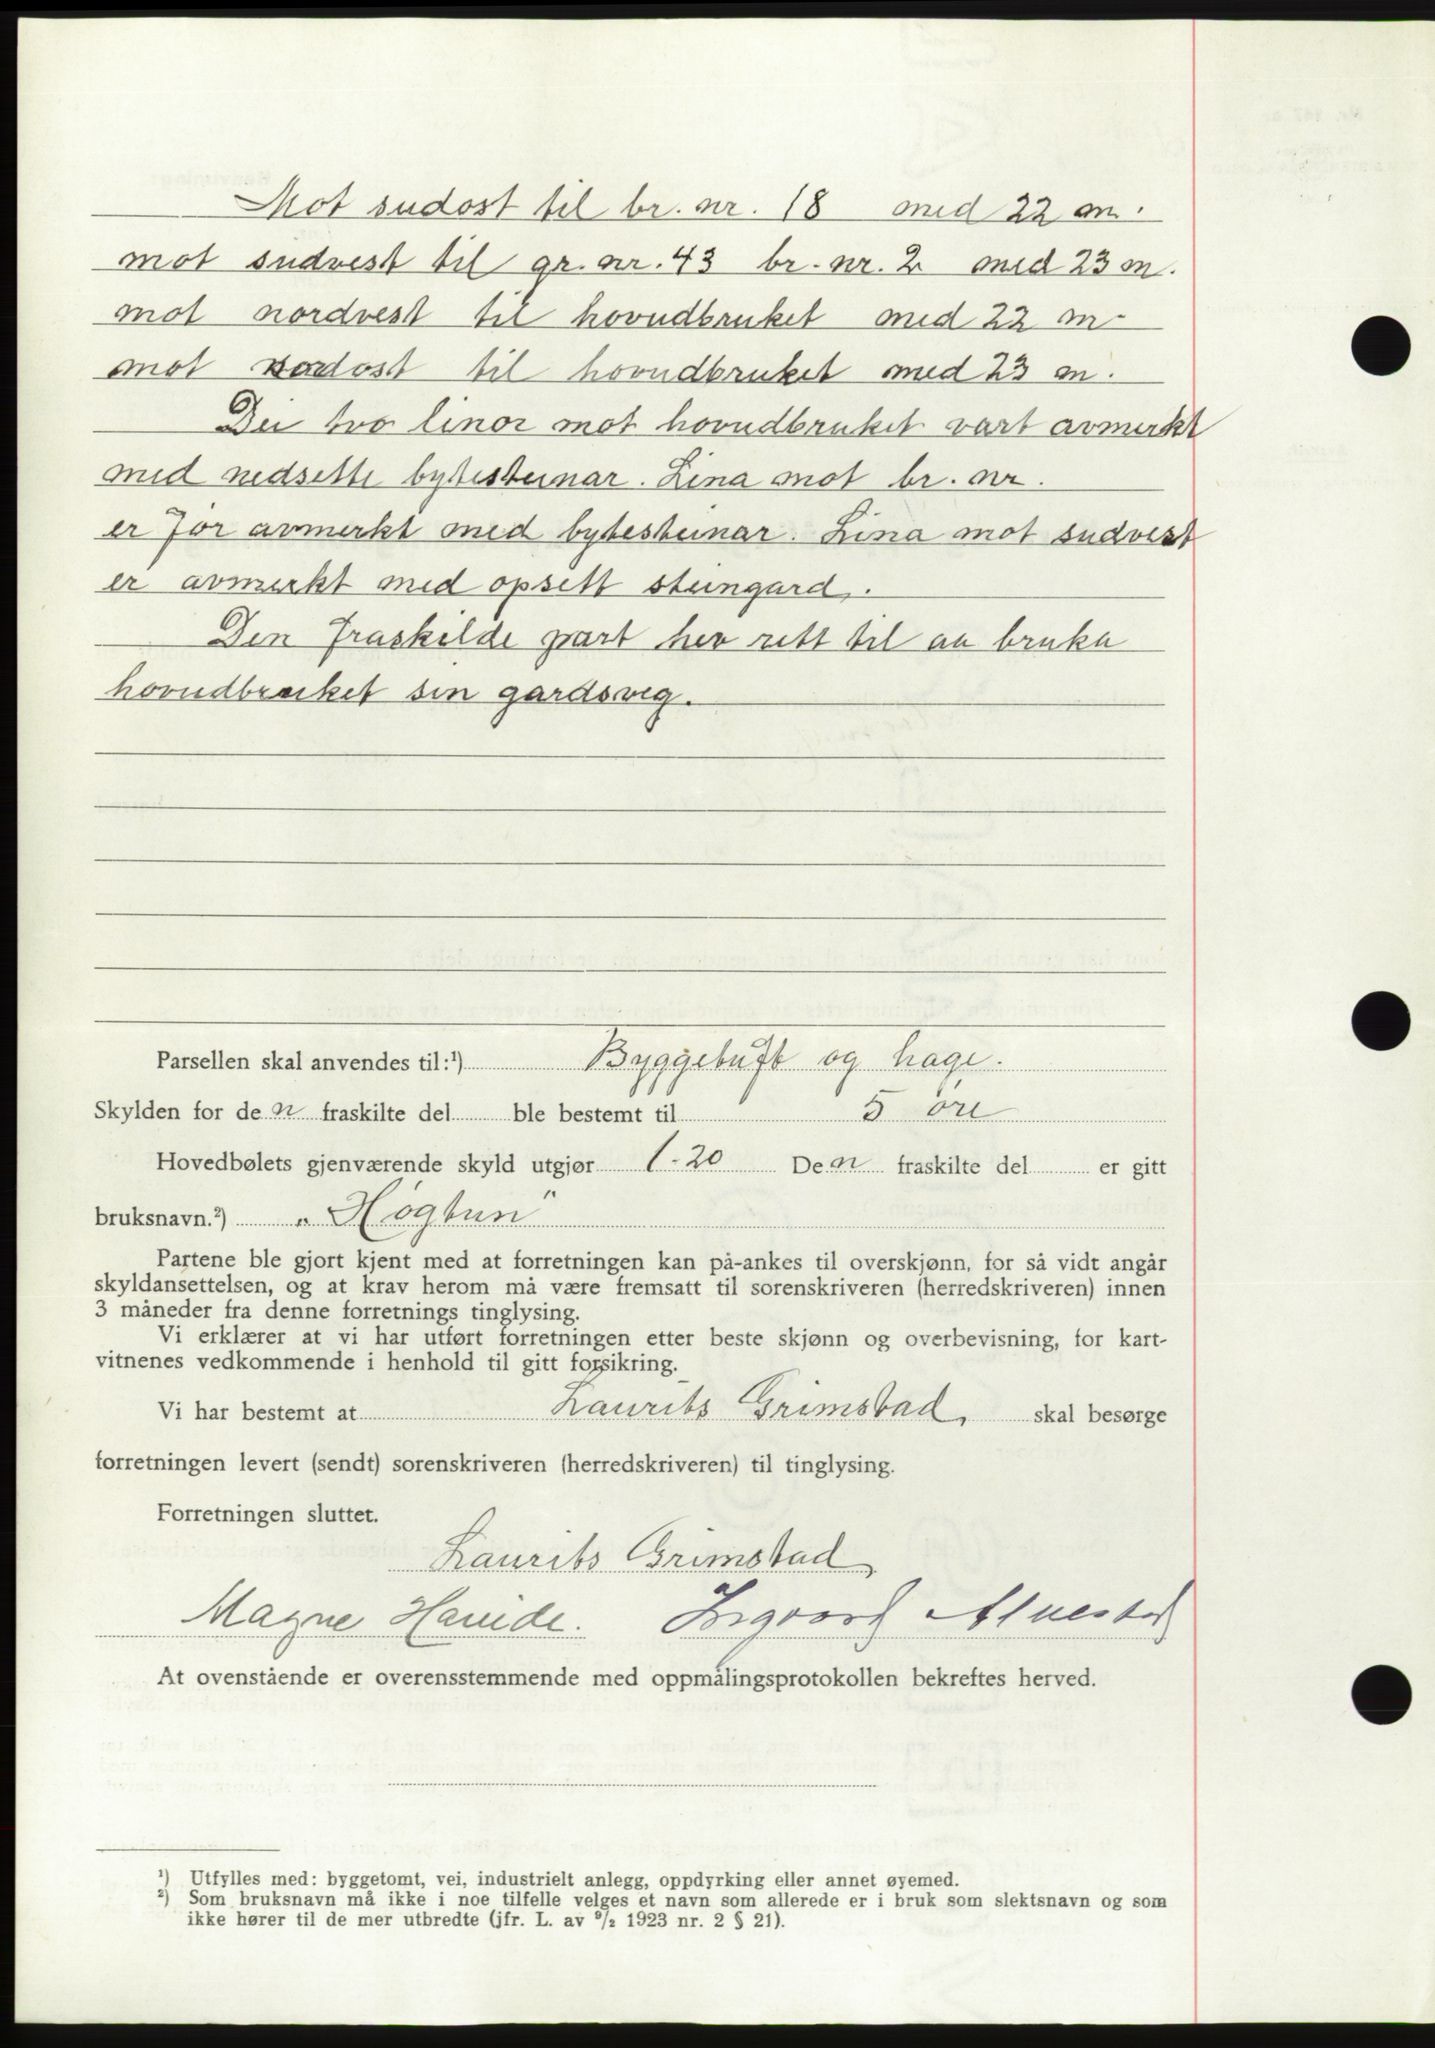 Mot sudost til br. nr. 18 med 22 m.
mot sudvest til gr. nr. 43 br. nr. 2 med 23 m.
mot nordvest til hovudbruket med 22 m.
mot nordost til hovudbruket med 23 m.
Dei tvo linor mot hovudbruket vart avmerkt
med nedsette bytesteinar. Lina mot br. nr.
er för avmerkt med bytesteinar. Lina mot sudvest
er avmerkt med opsett steingard.
Den fraskilde part hev rett til aa bruka
hovudbruket sin gardsveg.
Parsellen skal anvendes til:¹) Byggetuft og hage.
Skylden for den fraskilte del ble bestemt til 5 öre
Hovedbølets gjenværende skyld utgjør 1.20 Den fraskilte del er gitt
bruksnavn.²) „Høgtun"
Partene ble gjort kjent med at forretningen kan på-ankes til overskjønn, for så vidt angår
skyldansettelsen, og at krav herom må være fremsatt til sorenskriveren (herredskriveren) innen
3 måneder fra denne forretnings tinglysing.
Vi erklærer at vi har utført forretningen etter beste skjønn og overbevisning, for kart-
vitnenes vedkommende i henhold til gitt forsikring.
Vi har bestemt at Laurits Grimstad, skal besørge
forretningen levert (sendt) sorenskriveren (herredskriveren) til tinglysing.
Forretningen sluttet.
Laurits Grimstad,
Magne Hareide. Ingvard Alnestad
At ovenstående er overensstemmende med oppmålingsprotokollen bekreftes herved.
¹) Utfylles med: byggetomt, vei, industrielt anlegg, oppdyrking eller annet øyemed.
²) Som bruksnavn må ikke i noe tilfelle velges et navn som allerede er i bruk som slektsnavn og som
ikke hører til de mer utbredte (jfr. L. av ⁹/₂ 1923 nr. 2 § 21).